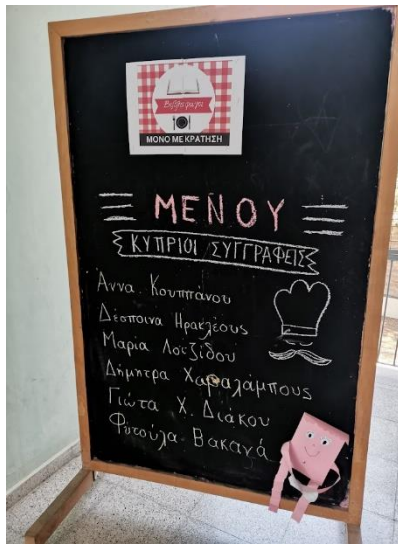 Βιβλιοφαγία
ΜΟΝΟ ΜΕ ΚΡΑΤΗΣΗ
ΜΕΝΟΥ
ΚΥΠΡΙΟΙ ΣΥΓΓΡΑΦΕΙΣ
Άννα Κουππάνου
Δέσποινα Ηρακλέους
Μαρία Λοϊζίδου
Δήμητρα Χαραλάμπους
Γιώτα Χ. Διάκου
Φυτούλα Βακανά